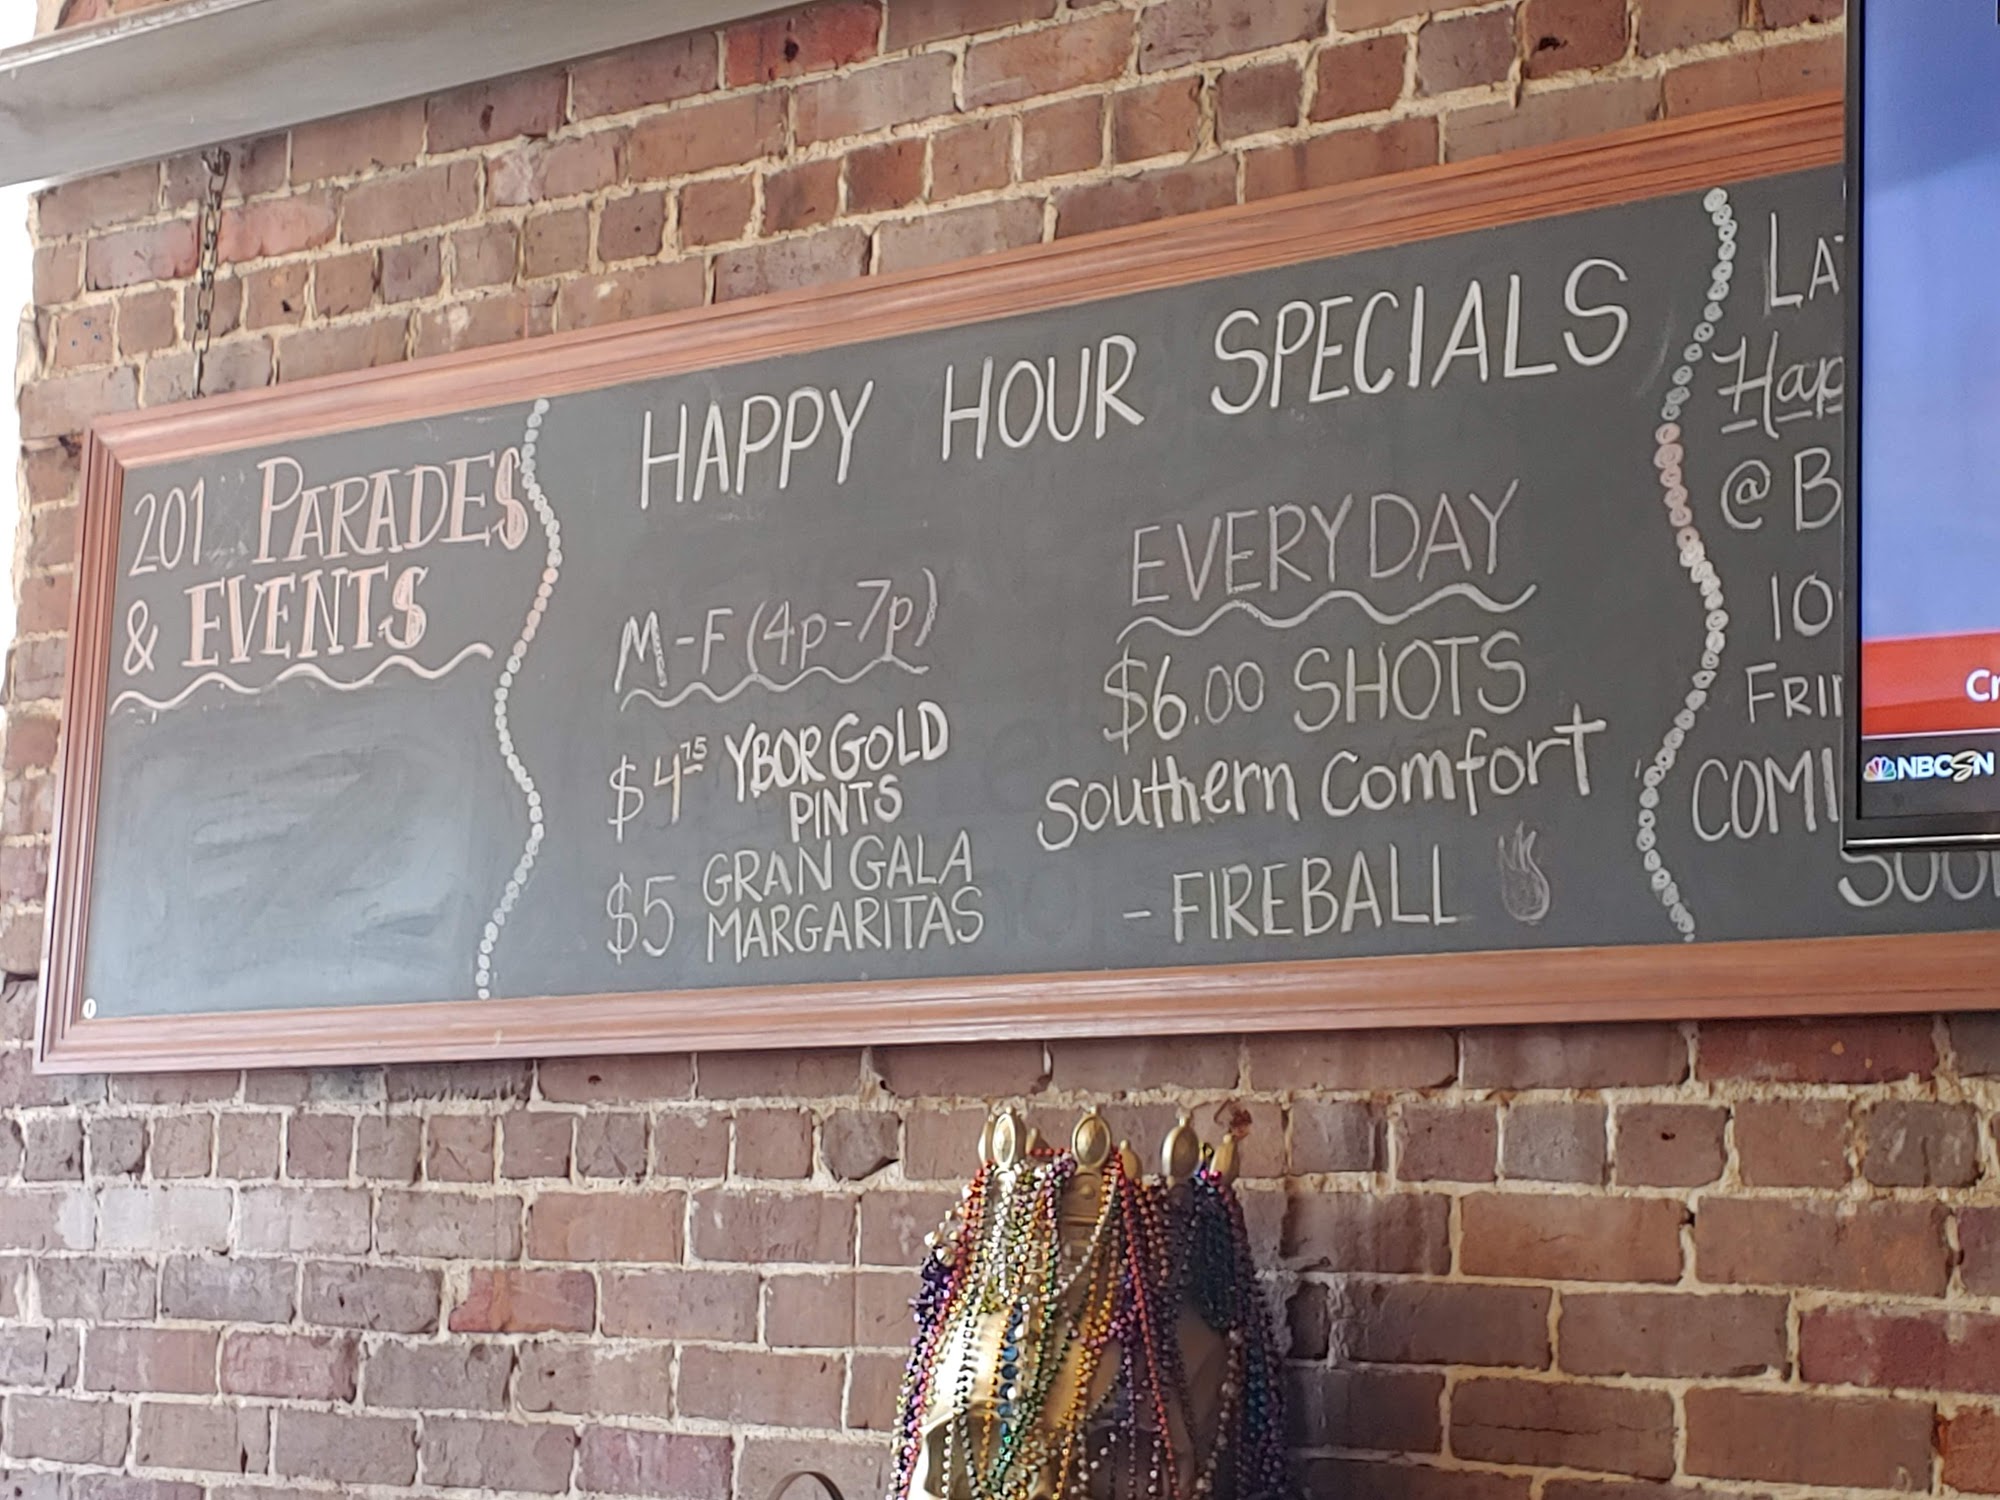 201 PARADES
& EVENTS
HAPPY HOUR SPECIALS
M-F (4p-7p)
$4.75 YBOR GOLD
PINTS
$5 GRAN GALA
MARGARITAS
EVERYDAY
$6.00 SHOTS
Southern Comfort
- FIREBALL
@ B
10
COMI
NBCSN